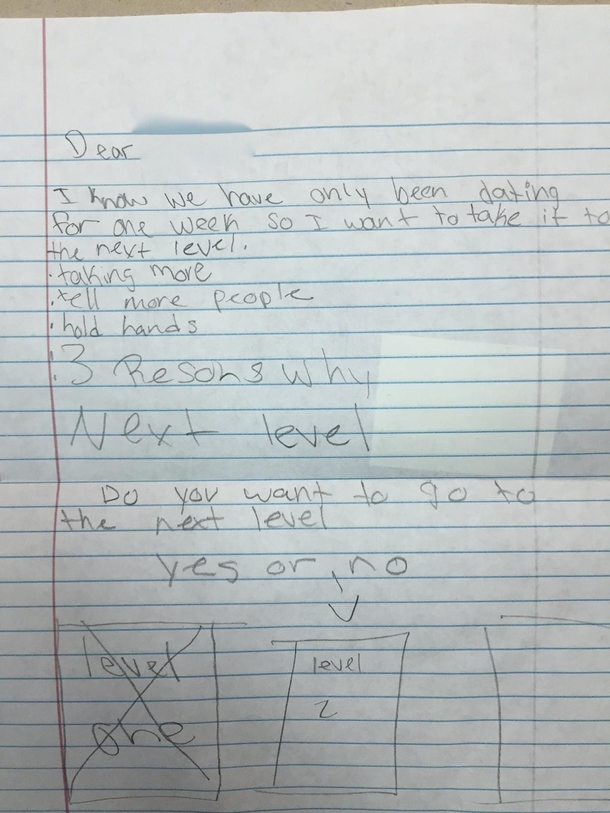 Dear
I know we have only been dating
for one week so I want to take it to
the next level.
. taking more
. tell more people
. hold hands
:3 Resons why
Next level
Do you want to go to
the next level
yes or, no
level one
level 2